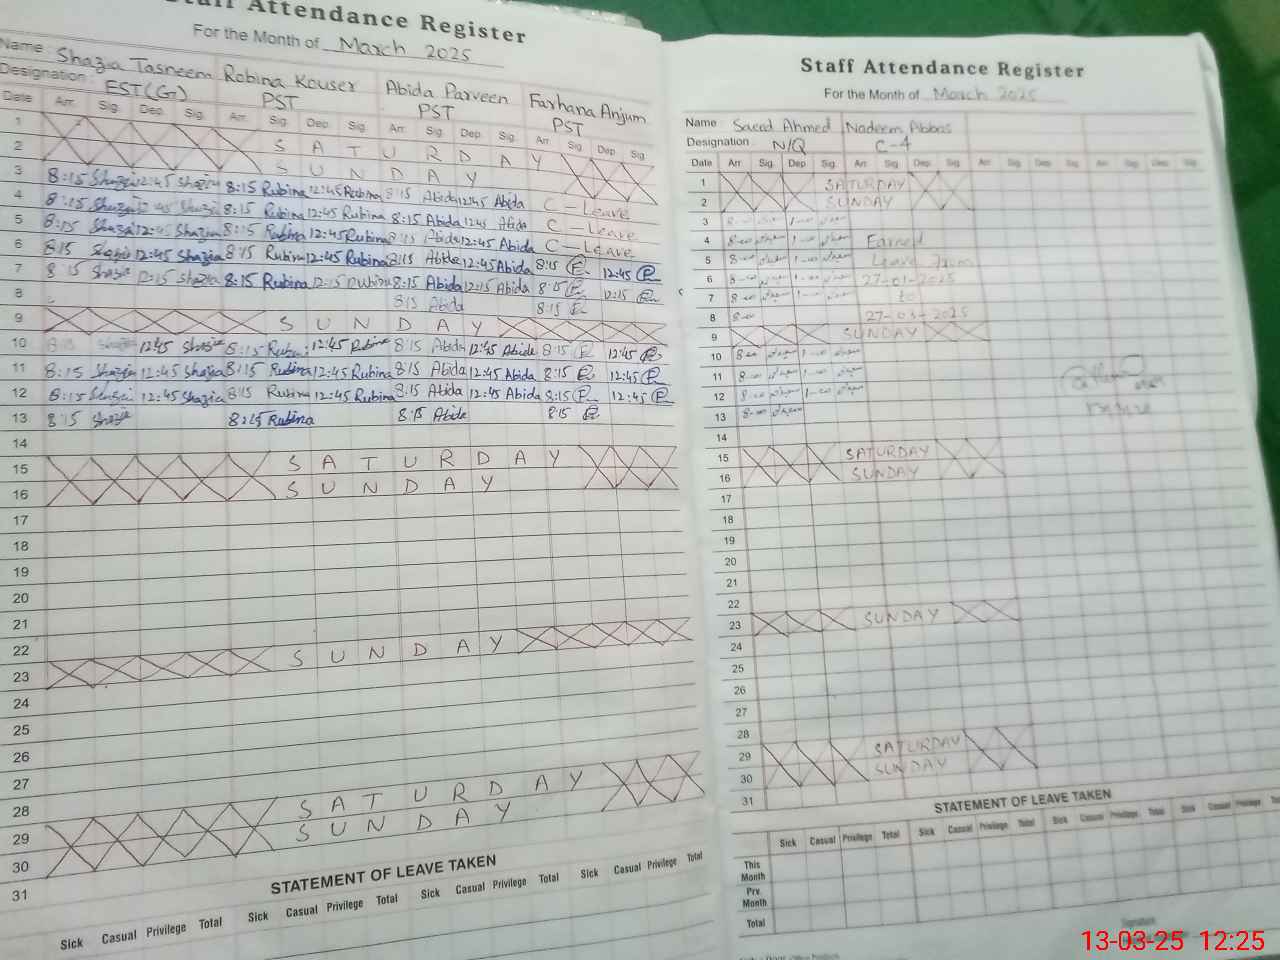 Staff Attendance Register
For the Month of March 2025
Name Shazia Tasneem Robina Kouser Abida Parveen Farhana Anjum
Designation EST(G) PST PST PST
Date Arr. Sig. Dep. Sig. Arr. Sig. Dep. Sig. Arr. Sig. Dep. Sig. Arr. Sig. Dep. Sig.
1 SATURDAY
2 SUNDAY
3 8:15 Shazia 12:45 Shazia 8:15 Rubina 12:45 Rubina 8:15 Abida 12:45 Abida C-Leave
4 8:15 Shazia 12:45 Shazia 8:15 Rubina 12:45 Rubina 8:15 Abida 12:45 Abida C-Leave
5 8:15 Shazia 12:45 Shazia 8:15 Rubina 12:45 Rubina 8:15 Abida 12:45 Abida C-Leave
6 8:15 Shazia 12:45 Shazia 8:15 Rubina 12:45 Rubina 8:15 Abida 12:45 Abida 8:15 12:45
7 8:15 Shazia 12:15 Shazia 8:15 Rubina 12:15 Rubina 8:15 Abida 12:15 Abida 8:15 12:15
8 8:15 Abida 8:15
9 SUNDAY
10 8:15 12:45 Shazia 8:15 Rubina 12:45 Rubina 8:15 Abida 12:45 Abida 8:15 12:45
11 8:15 Shazia 12:45 Shazia 8:15 Rubina 12:45 Rubina 8:15 Abida 12:45 Abida 8:15 12:45
12 8:15 Shazia 12:45 Shazia 8:15 Rubina 12:45 Rubina 8:15 Abida 12:45 Abida 8:15 12:45
13 8:15 Shazia 8:15 Rubina 8:15 Abida 8:15
14
15 SATURDAY
16 SUNDAY
17
18
19
20
21
22
23 SUNDAY
24
25
26
27
28
29 SATURDAY
30 SUNDAY
31
STATEMENT OF LEAVE TAKEN
Sick Casual Privilege Total Sick Casual Privilege Total Sick Casual Privilege Total Sick Casual Privilege Total
Staff Attendance Register
For the Month of March 2025
Name Saeed Ahmed Nadeem Abbas
Designation N/Q C-4
Date Arr Sig. Dep Sig. Arr. Sig. Dep. Sig. Arr. Sig. Dep. Sig. Arr. Sig. Dep. Sig.
1 SATURDAY
2 SUNDAY
3
4 Earned
5 Leave From
6 27-01-2025
7 to
8 27-03-2025
9 SUNDAY
10
11
12
13
14
15 SATURDAY
16 SUNDAY
17
18
19
20
21
22
23 SUNDAY
24
25
26
27
28
29 SATURDAY
30 SUNDAY
31
STATEMENT OF LEAVE TAKEN
Sick Casual Privilege Total Sick Casual Privilege Total Sick Casual Privilege Total Sick Casual Privilege
This Month
Prv. Month
Total
13-03-25 12:25